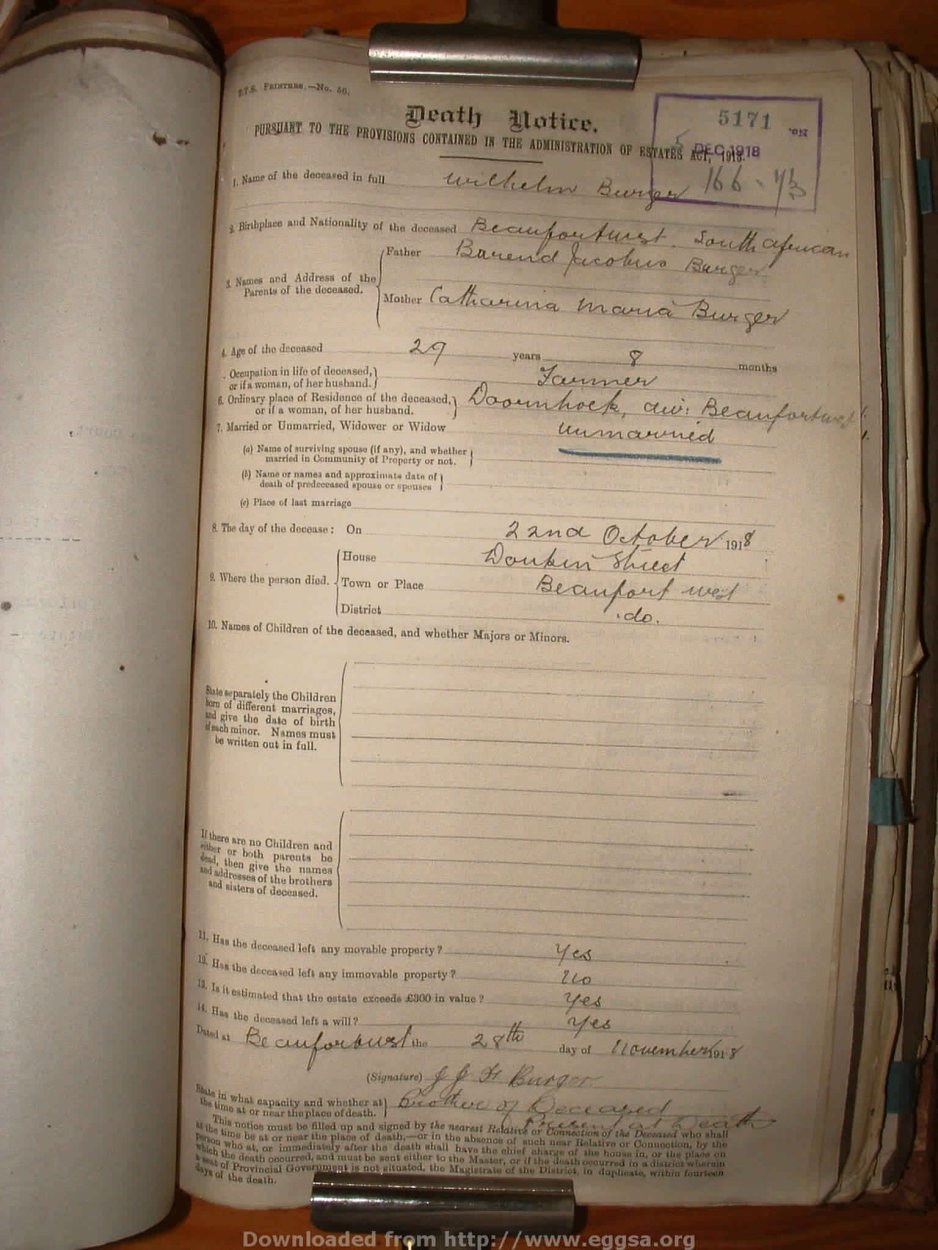 T.T.S. PRINTERS.—No. 56.
Death Notice.
PURSUANT TO THE PROVISIONS CONTAINED IN THE ADMINISTRATION OF ESTATES ACT, 1913.
No. 5171
5 DEC 1918
166 - 43
1. Name of the deceased in full Wilhelm Burger
2. Birthplace and Nationality of the deceased Beaufortwest. South african
3. Names and Address of the Parents of the deceased.
Father Barend Jacobus Burger
Mother Catharina Maria Burger
4. Age of the deceased 29 years 8 months
Occupation in life of deceased, or if a woman, of her husband. Farmer
6. Ordinary place of Residence of the deceased, or if a woman, of her husband. Doornhoek, div: Beaufortwest
7. Married or Unmarried, Widower or Widow unmarried
(a) Name of surviving spouse (if any), and whether married in Community of Property or not.
(b) Name or names and approximate date of death of predeceased spouse or spouses
(c) Place of last marriage
8. The day of the decease: On 22nd October 1918
9. Where the person died.
House Donkin Street
Town or Place Beaufort west
District do.
10. Names of Children of the deceased, and whether Majors or Minors.
State separately the Children
born of different marriages,
and give the date of birth
of each minor. Names must
be written out in full.
If there are no Children and
either or both parents be
dead, then give the names
and addresses of the brothers
and sisters of deceased.
11. Has the deceased left any movable property? Yes
12. Has the deceased left any immovable property? no
13. Is it estimated that the estate exceeds £300 in value? Yes
14. Has the deceased left a will? Yes
Dated at Beaufortwest the 28th day of November 1918
(Signature) Burger
State in what capacity and whether at the time at or near the place of death. Brother of Deceased
Present at Death
This notice must be filled up and signed by the nearest Relative or Connection of the Deceased who shall
at the time be at or near the place of death,—or in the absence of such near Relative or Connection, by the
person who at, or immediately after the death shall have the chief charge of the house in, or the place on
which the death occurred, and must be sent either to the Master, or if the death occurred in a district wherein
a seat of Provincial Government is not situated, the Magistrate of the District, in duplicate, within fourteen
days of the death.
Downloaded from http://www.eggsa.org